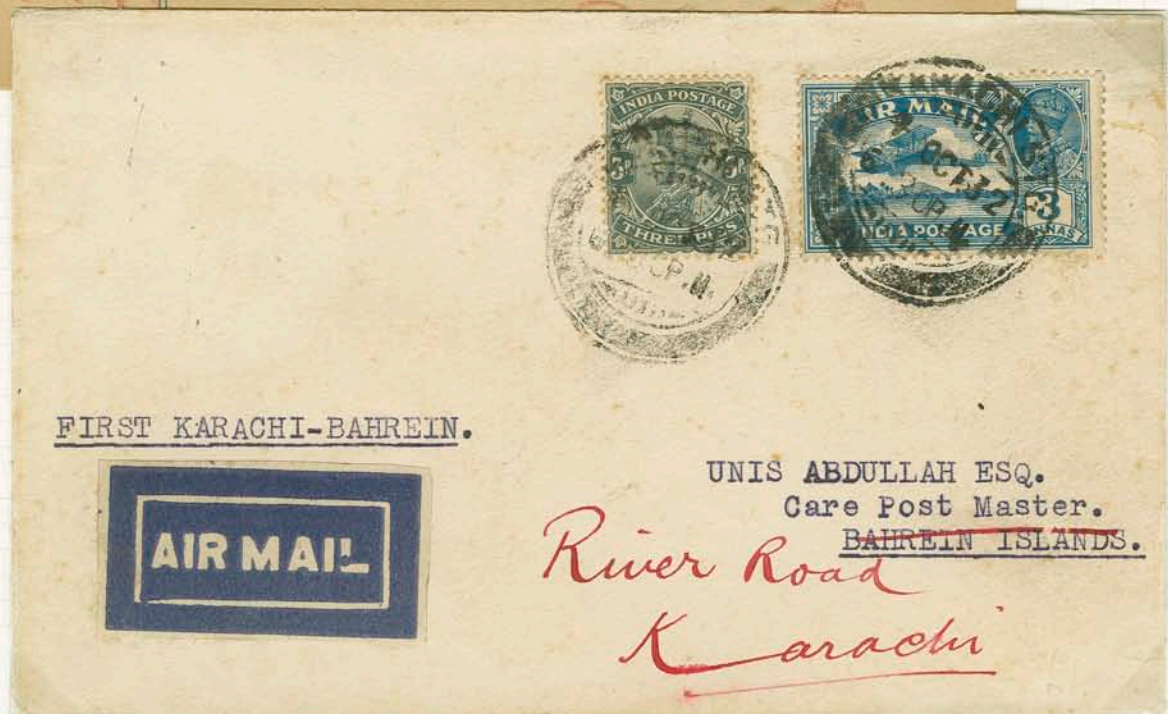 INDIA POSTAGE
3P
THREE PIES
AIR MAIL
OCT 32
INDIA POSTAGE
3
ANNAS
FIRST KARACHI-BAHREIN.
AIR MAIL
UNIS ABDULLAH ESQ.
Care Post Master.
BAHREIN ISLANDS.
River Road
Karachi